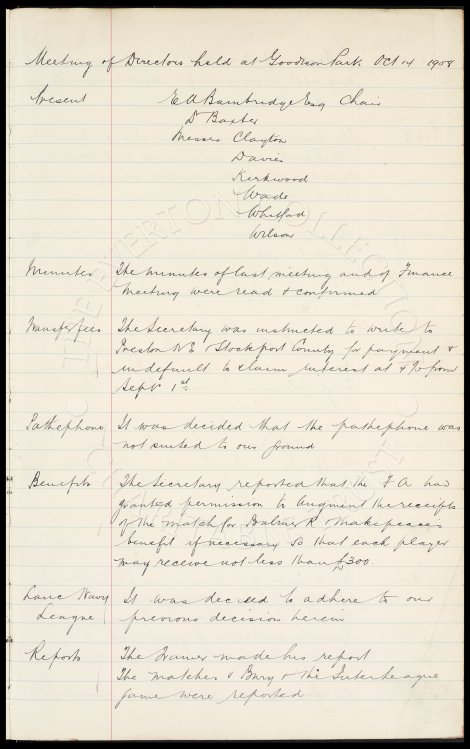 Meeting of Directors held at Goodison Park Oct 14 1908
Present E A Bainbridge Esq Chair
Dr Baxter
Messrs Clayton
Davies
Kirkwood
Wade
Whitford
Wilson
Minutes The minutes of last meeting and of Finance
Meeting were read & confirmed
Transfer fees The Secretary was instructed to write to
Preston N E & Stockport County for payment &
in default to claim interest at 4 % from
Sept 1st
Pathephone It was decided that the pathephone was
not suited to our ground
Benefits The Secretary reported that the F A had
granted permission to augment the receipts
of the match for Balmer R & Makepeace's
benefit if necessary so that each player
may receive not less than £300.
Lanc Navy It was decided to adhere to our
League previous decision herein
Reports The Trainer made his report
The matches v Bury & the Interleague
game were reported
THE EVERTON COLLECTION